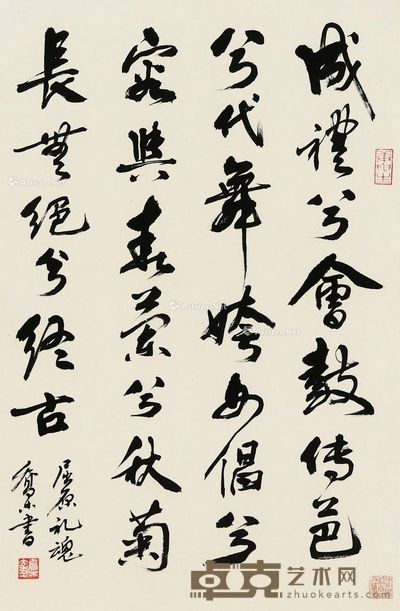 成禮兮會鼓傳芭
兮代舞姱女倡兮
容與春蘭兮秋菊
長無絕兮終古
屈原礼魂
喬木書
卓克艺术网
www.zhuokearts.com